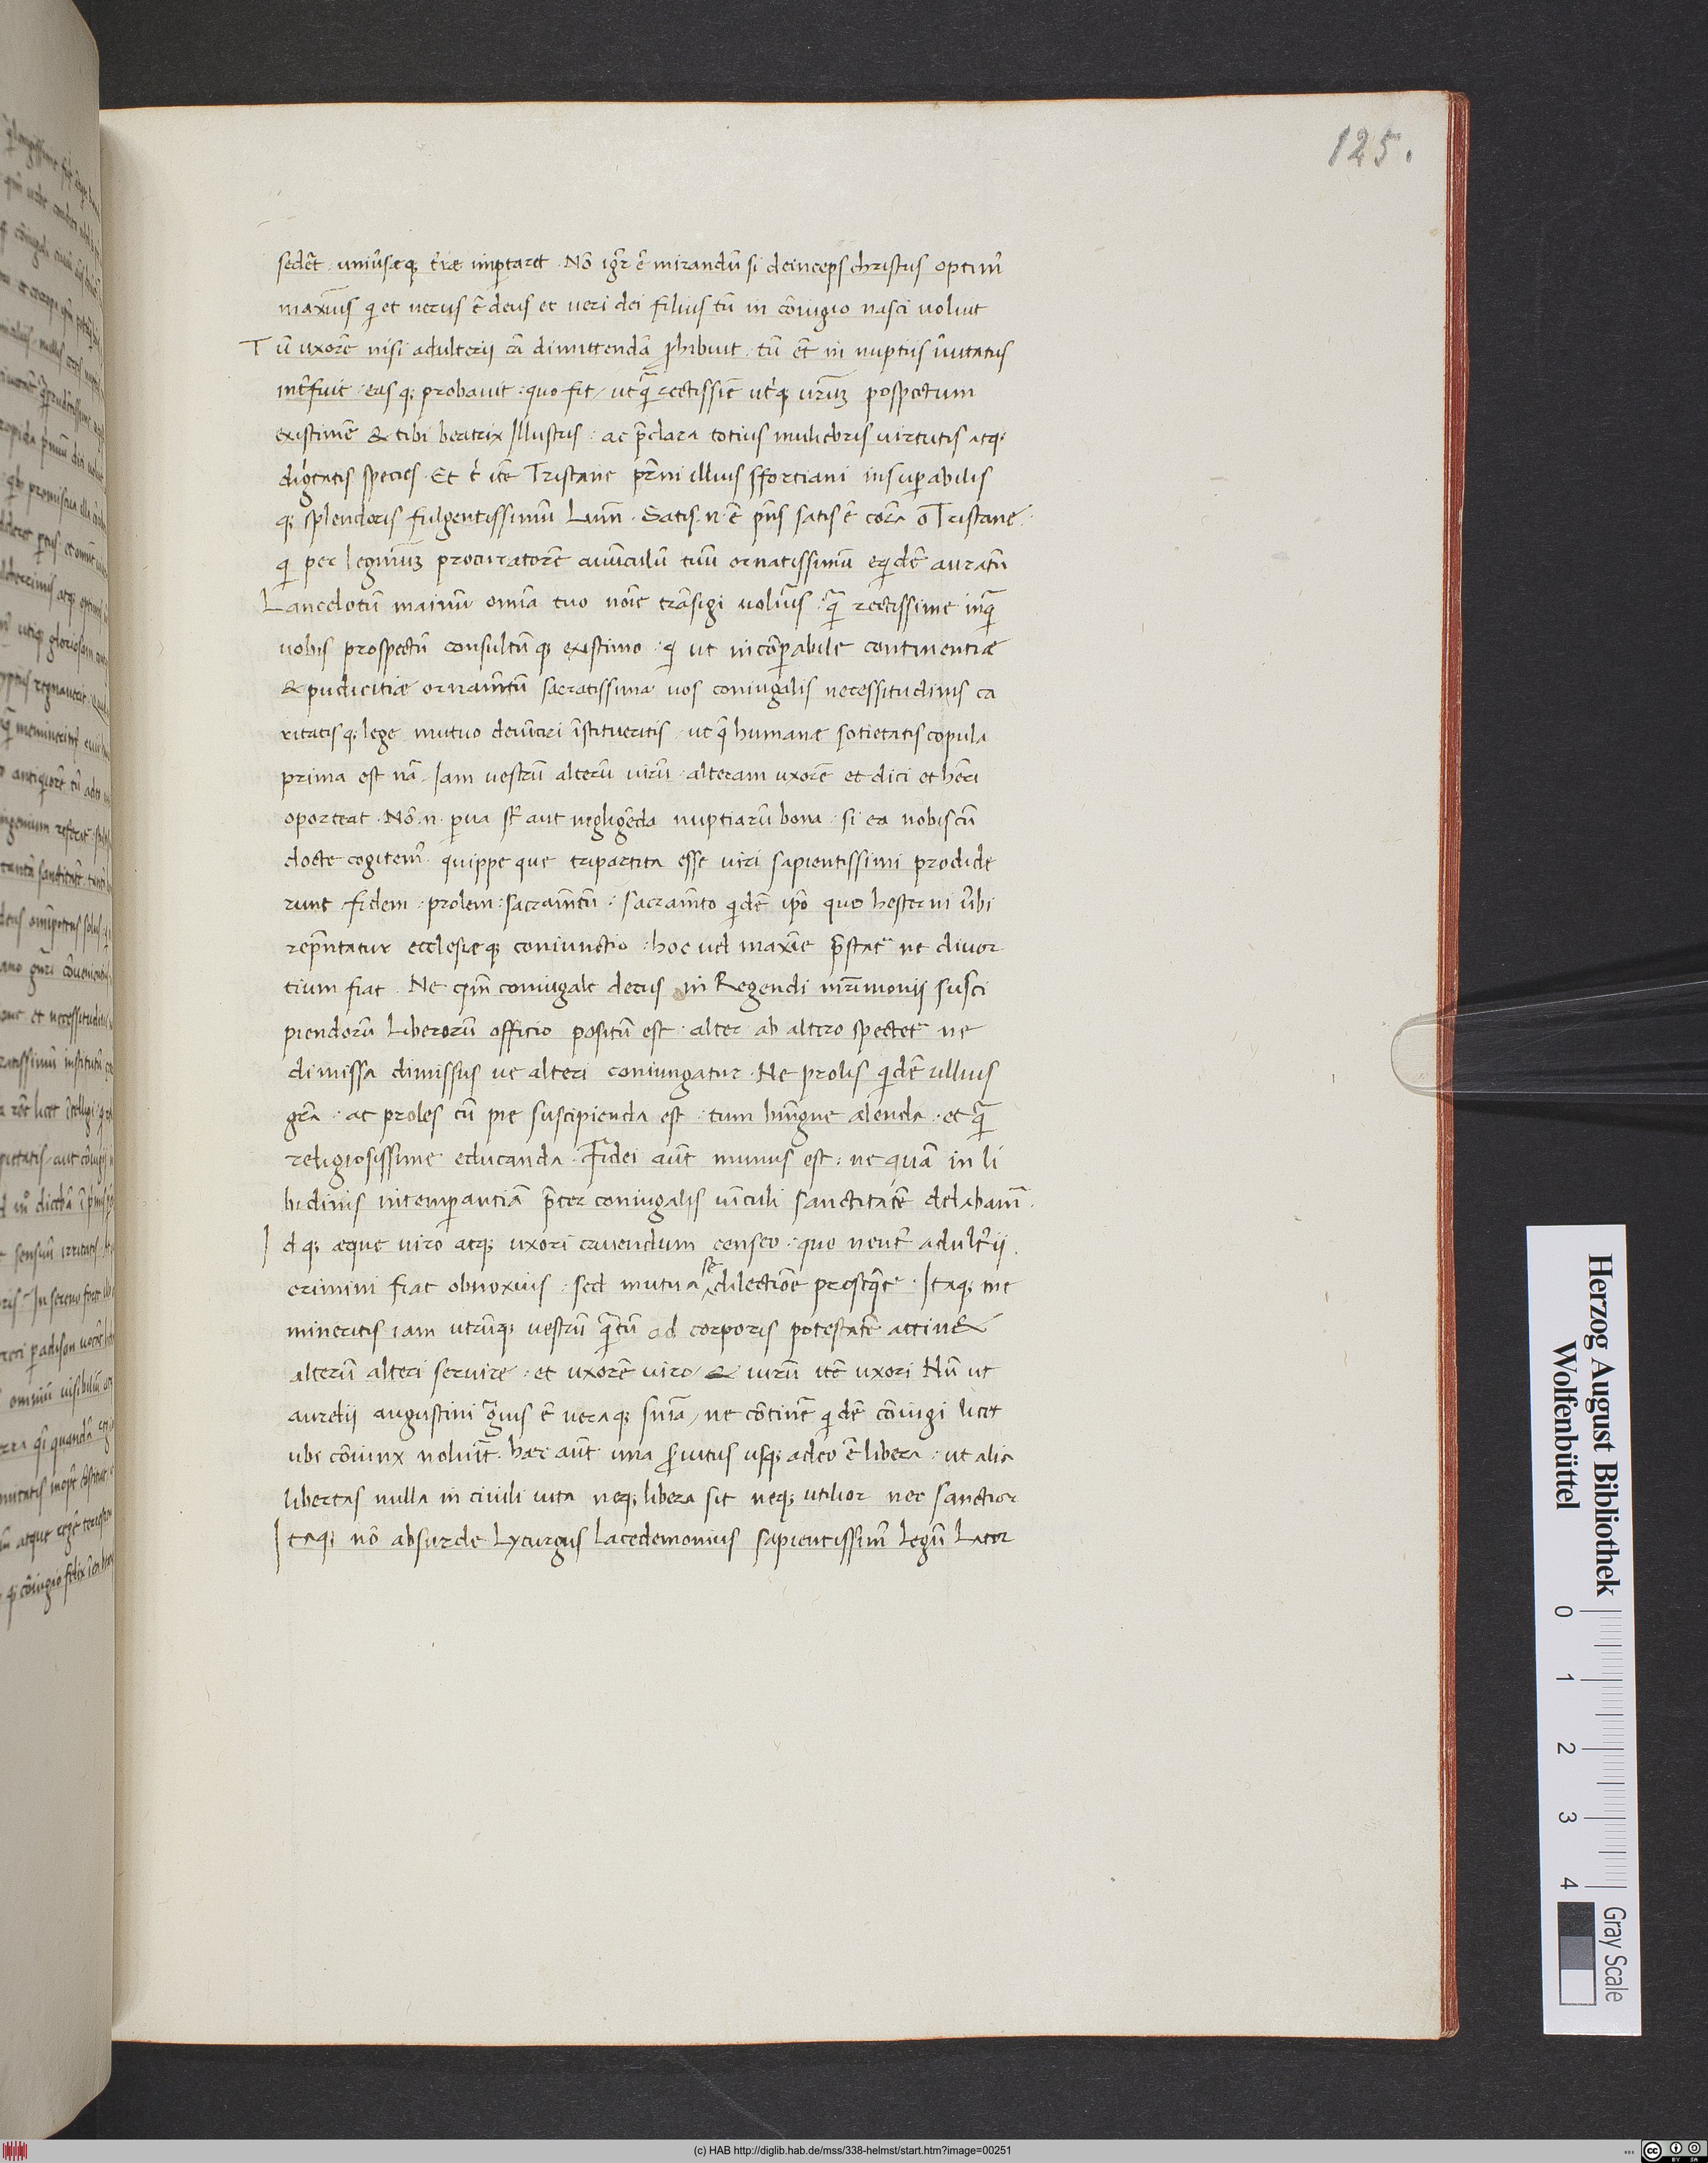 125.
sedēt · uniūsæq; t'ræ imptaret · Nō igr̄ ē mirandū si deinceps christus optim9
maxīus q et uerus ē deus et ueri dei filius tū in cōiugio nasci uoluit
Tū uxorē nisi adulterii cā dimittendā phibuit · tū ēt in nuptiis īuitatus
intfuit · eas q; probauit : quo fit / ut q̄ rectissīe utq; urm̄ pospectum
existimē & tibi beatrix Illustris : ac p̄clara totius muliebris uirtutis atq;
digtatis species · Et t ītē Tristane pr̄ni illius sfortiani insuperabilis
q; splendoris fulgentissimū Lum̄ · Satis · n · ē pn̄s satis ē corā o Tristane
q per legittimū procuratorē auūculū tuū ornatissimū eqdē auratū
Lancelotū mainū omīa tuo noīe trāsigi uoluīs : q̄ rectissime inq̄
uobis prospectū consultū q; existimo : q ut incōpabile continentiæ
& pudicitiæ ornamtū sacratissima uos coniugalis necessitudinis ca
ritatis q; lege mutuo deuīciri īstitueritis / ut q̄ humanæ sotietatis copula
prima est nā · Iam uestrū alterū uirū · alteram uxorē et dici et hēri
oporteat · Nō · n · pua st aut negligēda nuptiarū bona · si ea nobiscū
docte cogitem9 · quippe que tripartita esse uiri sapientissimi prodide
runt · fidem · prolem : sacramtū : sacramto qdē ipō quo hesterni ūbi
rep̄ntatur ecclesieq; coniunctio : hoc uel maxīe p̄stat ne diuor
tium fiat · Ne qm̄ coniugale decus in Regendi mr̄imonii susci
piendorū liberorū officio positū est · alter ab altero spectet ne
dimissa dimissus ue alteri coniungatur · Ne prolis qdē ullius
gr̄a · at proles cū pie suscipienda est · tum beningne alenda · et q̄
religiosissime educanda · Fidei aūt munus est : ne quā in li
bidinis intemperantiā p̄ter coniugalis uīculi sanctitatē delabam̄ ·
Id q; æque uiro atq; uxori cauendum censeo : quo neut adultii
crimini fiat obnoxius : sed mutua se dilectiōe proseq̄t · Itaq; me
mineritis iam utrūq; uestrū q̄tū ad corporis potestatē attin&
alterū alteri seruire · et uxorē uiro / & uirū itē uxori Nū ut
aurelii augustini ḡuis ē ueraq; snīa / ne cōtinē qdē cōiugi licet
ubi cōiunx noluīt · hæc aūt una s̄uitus usq; adeo ē libera · ut alia
libertas nulla in ciuili uita neq; libera sit neq; utilior nec sanctior
Itaq; nō absurde Lycurgus lacedemonius sapientissim9 legū Lator
Herzog August Bibliothek
Wolfenbüttel
0 1 2 3 4
Gray Scale
(c) HAB http://diglib.hab.de/mss/338-helmst/start.htm?image=00251